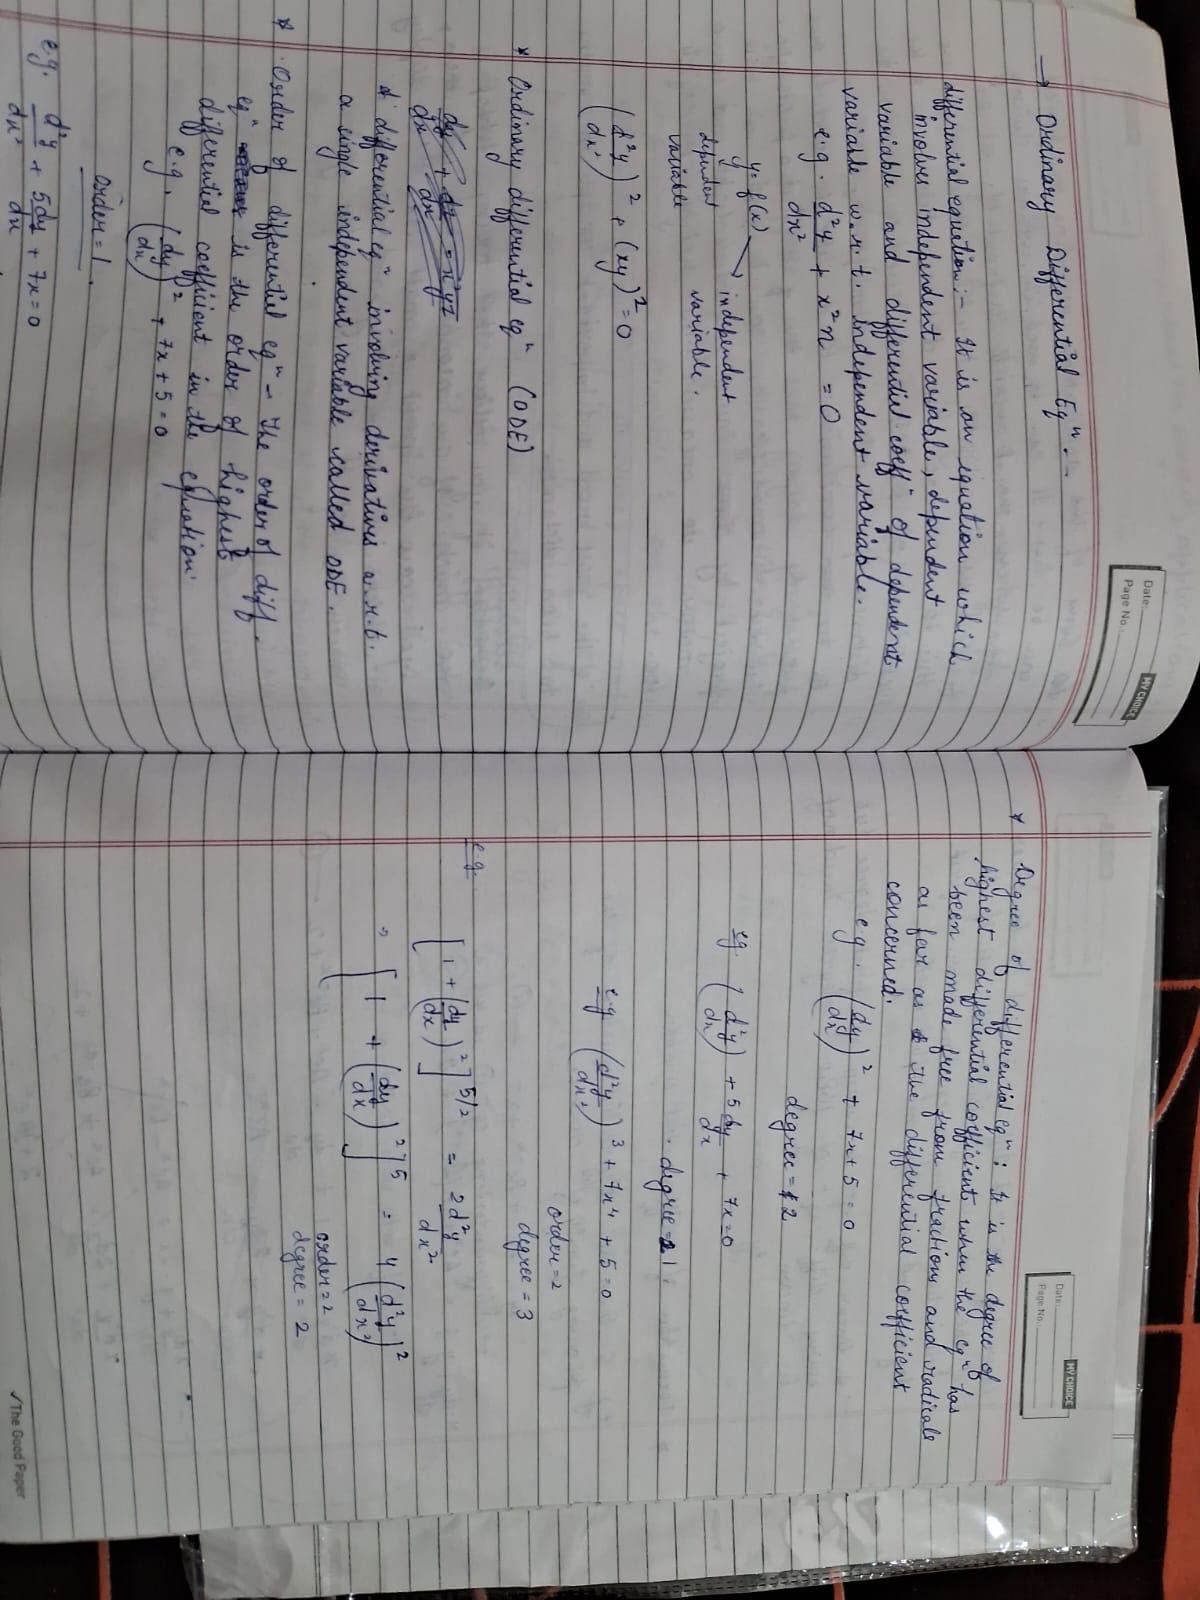 Date:
MY CHOICE
Page No.:
→ Ordinary Differential Eqⁿ.--
differential equation:- It is an equation which
involves independent variable, dependent
variable and differential coeffⁿ of dependent
variable w.r.t. independent variable.
e.g. d²y/dx² + x²n = 0
y = f(x)
independent
variable.
dependent
variable
(d²y/dx²)² + (xy)² = 0
* Ordinary differential eqⁿ (ODE)
A differential eqⁿ involving derivatives w.r.t.
a single independent variable called ODE.
* Order of differential eqⁿ - The order of diff.
eqⁿ is the order of highest
differential coefficient in the equation.
e.g. (dy/dx)² + 7x + 5 = 0
Order = 1.
e.g. d²y/dx² + 5dy/dx + 7x = 0
MY CHOICE
Date:
Page No.:
* Degree of differential eqⁿ: It is the degree of
highest differential coefficient when the eqⁿ has
been made free from fractions and radicals
as far as the differential coefficient
concerned.
e.g. (dy/dx)² + 7x + 5 = 0
degree = 2
eg. (d²y/dx) + 5dy/dx + 7x = 0
degree = 1
e.g (d²y/dx²)³ + 7x⁴ + 5 = 0
order = 2
degree = 3
e.g.
[1 + (dy/dx)²]^5/2 = 2d²y/dx²
⇒ [1 + (dy/dx)²]⁵ = 4(d²y/dx²)²
order = 2
degree = 2
✓The Good Paper